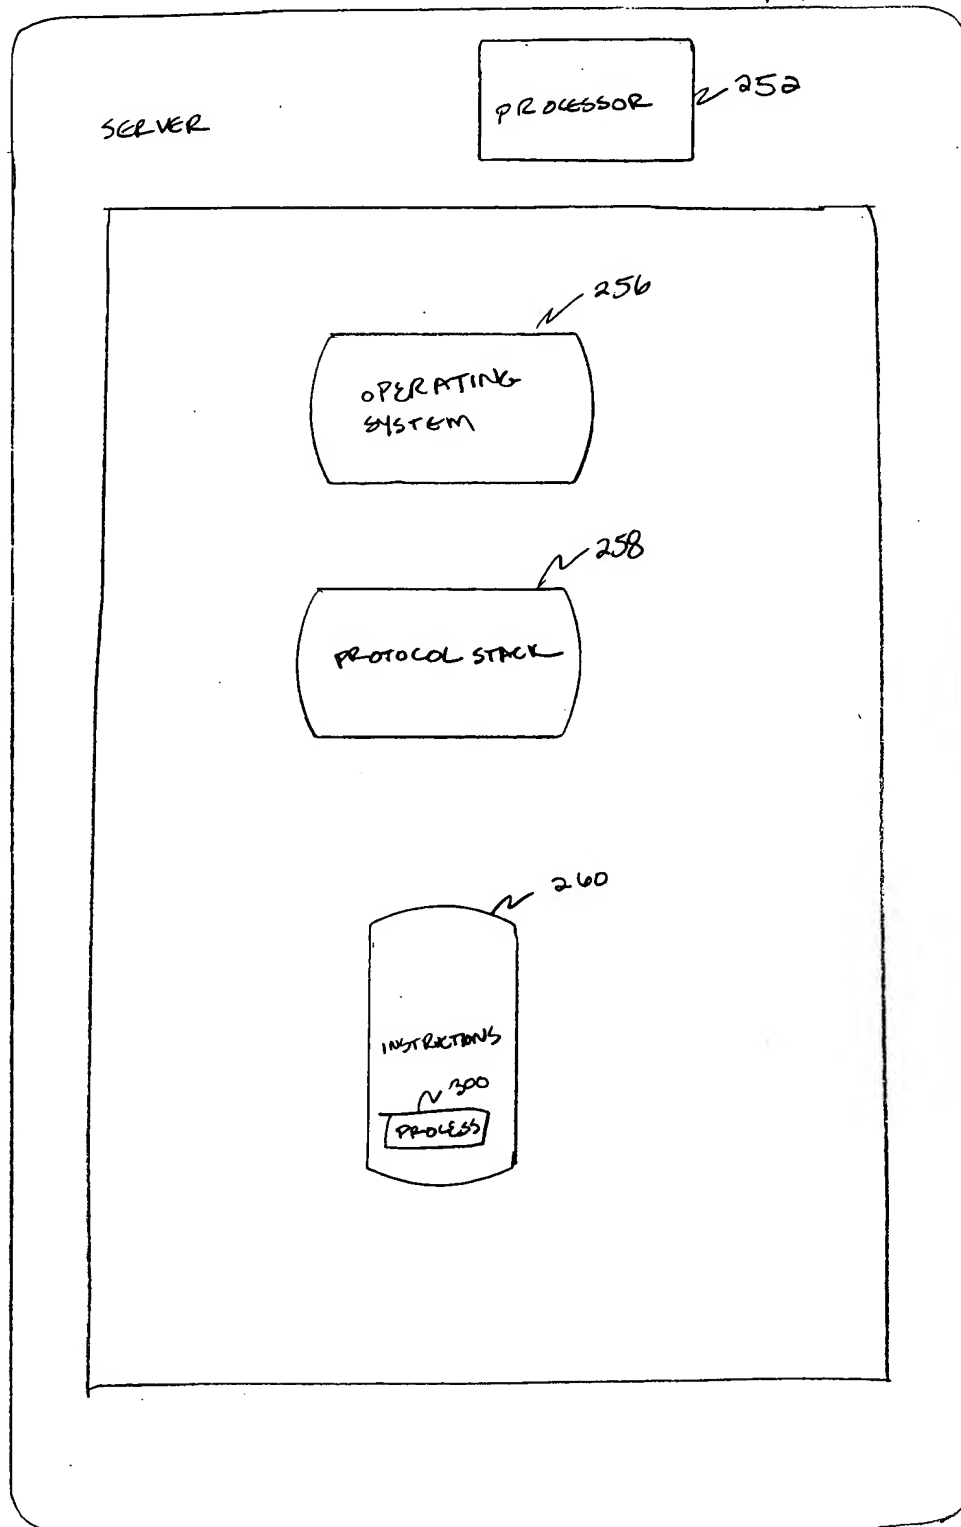 PROCESSOR
252
SERVER
256
OPERATING
SYSTEM
258
PROTOCOL STACK
260
INSTRUCTIONS
300
PROCESS